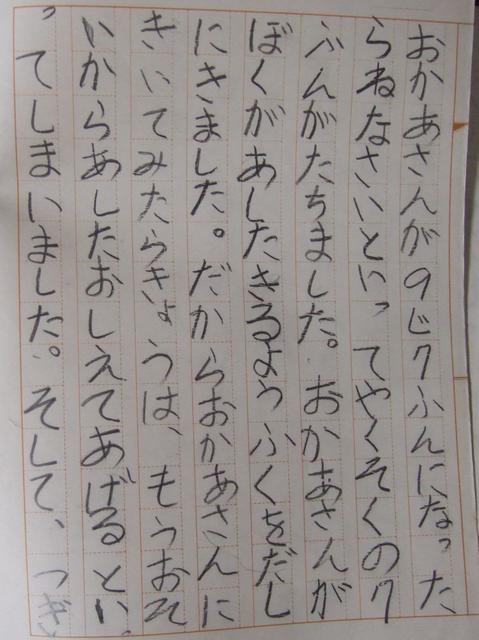 おかあさんが9じ7ふんになった
らねなさいといってやくそくの7
ふんがたちました。おかあさんが
ぼくがあしたきるようふくをだし
にきました。だからおかあさんに
きいてみたらきょうは、もうおそ
いからあしたおしえてあげるとい
ってしまいました。そして、つぎ